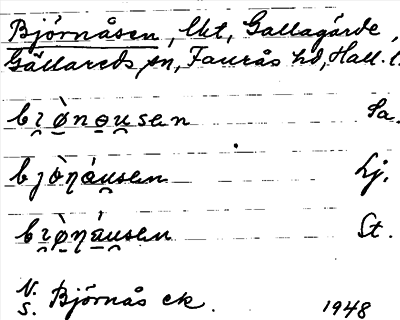 Björnåsen, lkt, Gallagärde,
Gällareds sn, Faurås hd, Hall. l.
bi̯ø̀nɑu̯sen Sa.
bjò̀ŋàusen Lj.
bi̯ø̀ŋáu̯sen St.
N.
S. Björnås ek. 1948